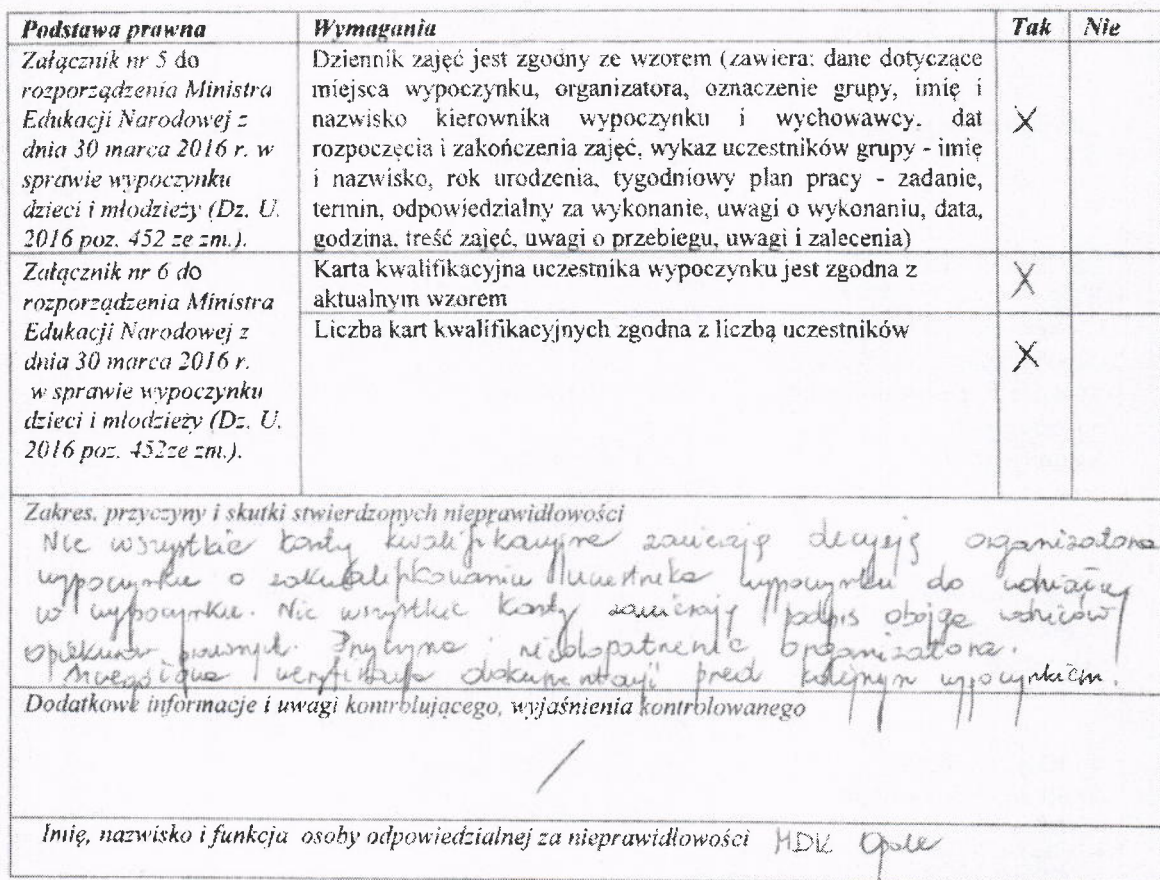 Podstawa prawna Wymagania Tak Nie
Załącznik nr 5 do
rozporządzenia Ministra
Edukacji Narodowej z
dnia 30 marca 2016 r. w
sprawie wypoczynku
dzieci i młodzieży (Dz. U.
2016 poz. 452 ze zm.).
Dziennik zajęć jest zgodny ze wzorem (zawiera: dane dotyczące
miejsca wypoczynku, organizatora, oznaczenie grupy, imię i
nazwisko kierownika wypoczynku i wychowawcy, dat
rozpoczęcia i zakończenia zajęć, wykaz uczestników grupy - imię
i nazwisko, rok urodzenia, tygodniowy plan pracy - zadanie,
termin, odpowiedzialny za wykonanie, uwagi o wykonaniu, data,
godzina, treść zajęć, uwagi o przebiegu, uwagi i zalecenia)
X
Załącznik nr 6 do
rozporządzenia Ministra
Edukacji Narodowej z
dnia 30 marca 2016 r.
w sprawie wypoczynku
dzieci i młodzieży (Dz. U.
2016 poz. 452ze zm.).
Karta kwalifikacyjna uczestnika wypoczynku jest zgodna z
aktualnym wzorem
X
Liczba kart kwalifikacyjnych zgodna z liczbą uczestników
X
Zakres, przyczyny i skutki stwierdzonych nieprawidłowości
Nie wszystkie karty kwalifikacyjne zawierają decyzję organizatora
wypoczynku o zakwalifikowaniu uczestnika wypoczynku do udziału
w wypoczynku. Nie wszystkie karty zawierają podpis obojga rodziców/
opiekunów prawnych. Przyczyna: niedopatrzenie organizatora.
weryfikacja dokumentacji przed kolejnym wypoczynkiem.
Dodatkowe informacje i uwagi kontrolującego, wyjaśnienia kontrolowanego
/
Imię, nazwisko i funkcja osoby odpowiedzialnej za nieprawidłowości MDK Opole